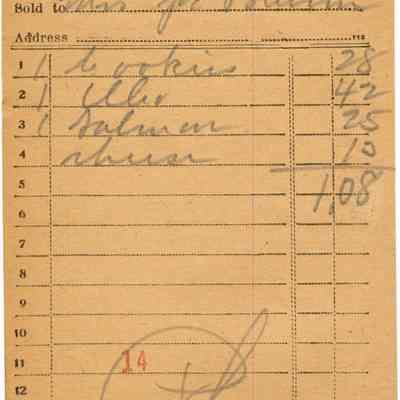 Sold to Mrs
Address
1 1 Cookies 28
2 1 42
3 1 Salmon 25
4 cheese 10
5 1,08
6
7
8
9
10
11 14
12